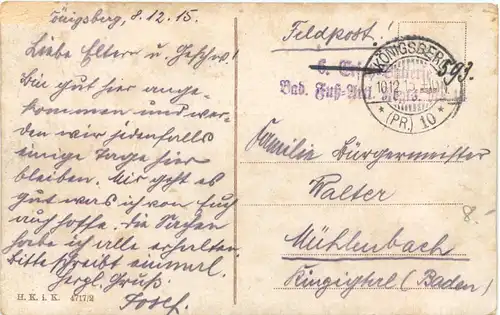 Königsberg, 8.12.15.
Liebe Eltern u. Geschw!
Bin gut hier ange
kommen und wer-
den wir jedenfalls
einige Tage hier
bleiben. Mir geht es
gut was ich von Euch
auch hoffe. die Sachen
habe ich alle erhalten
Bitte schreibt einmal.
Herzl. Gruß
Josef.
H. K. i. K. 4717/2
Feldpost!
6.
Bad. Fuß-Art
KÖNIGSBERG
10.12.
* (PR.) 10 *
593.
Familie Bürgermeister
Walter
Mühlenbach
Kinzigtal (Baden)
8.-